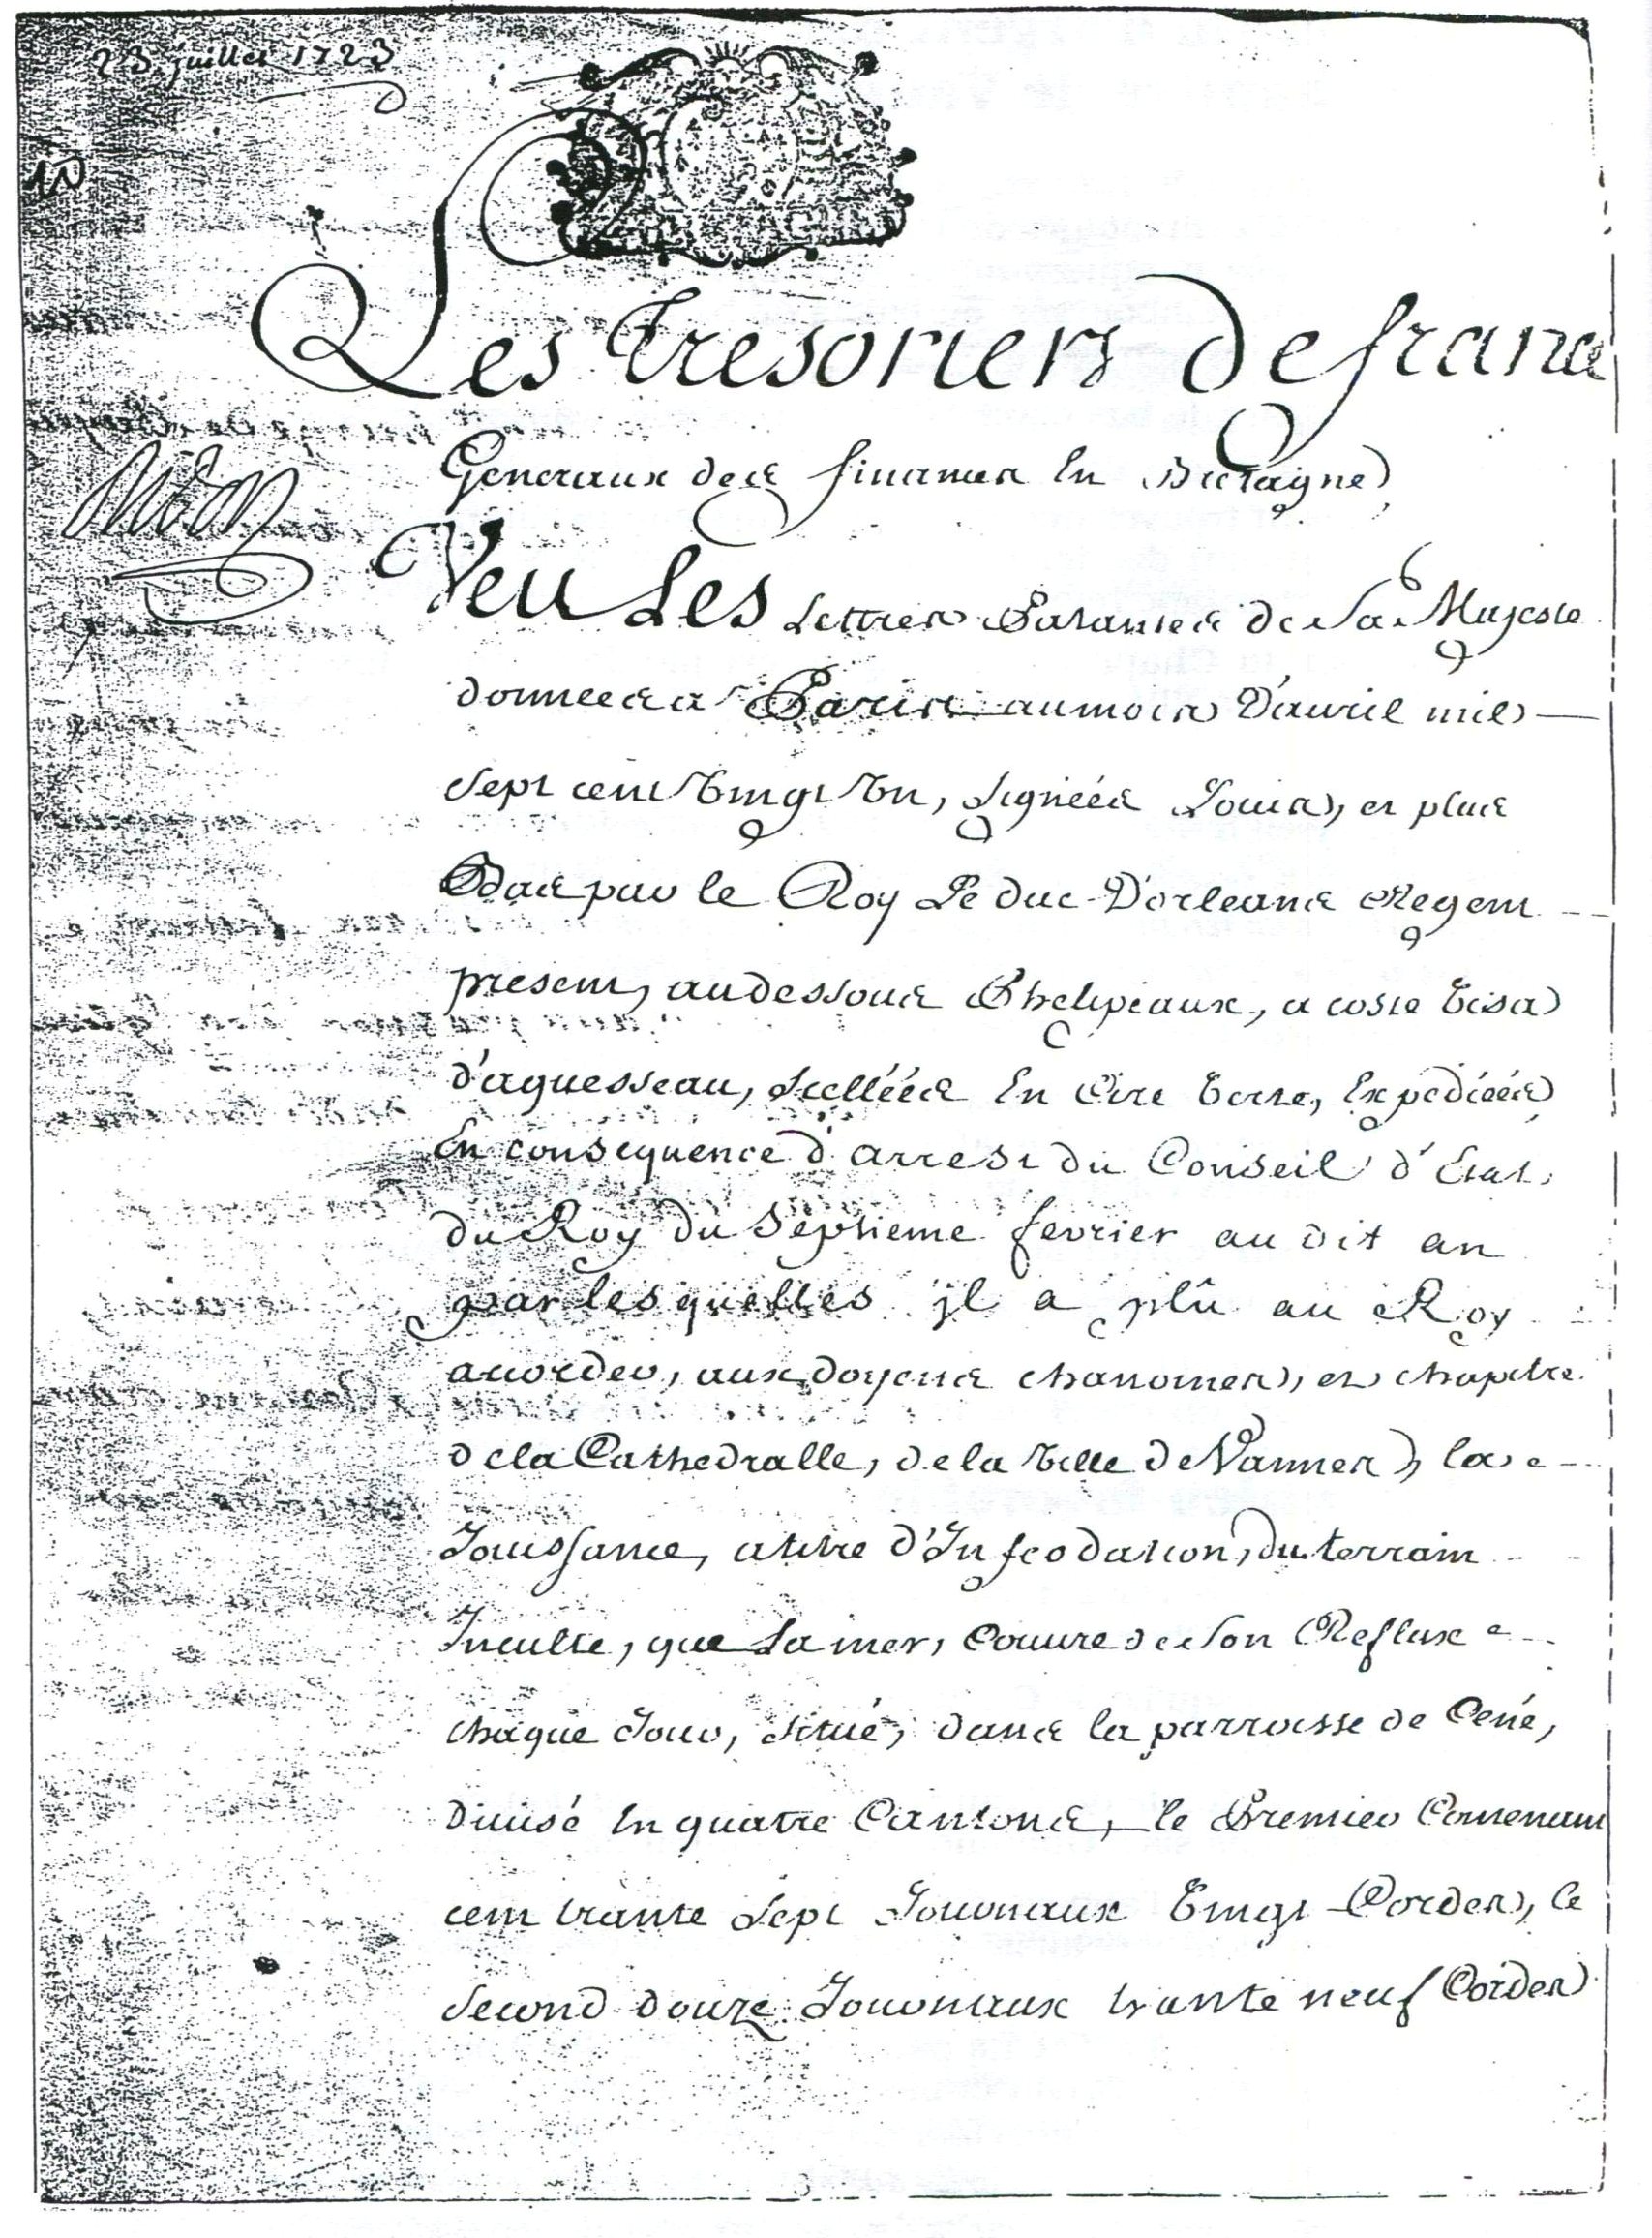 23 juillet 1723
Les Tresoriers de france
Generaux des finances En Bretagne
Veu Les Lettres Patantes de Sa Majeste
donnees a Paris au mois D'auril mil
Sept cent Vingt Un, Signéés Louis, et plus
Bas par le Roy Le Duc D'orleans Regent
present, au dessous Phelipeaux, a coste Visa
d'aguesseau, Scelléés En Cire Verte, Expediéés
En consequence d'arrest du Conseil d'Estat
du Roy du Septieme fevrier au dit an
par lesquelles il a plû au Roy
accorder, aux doyens chanoines, et chapitre
de la Cathedralle, de la Ville de Vannes, la
Jouissance, a titre d'Infeodation, du terrain
Inculte, que La mer, Couure de Son Reflux
chaque Jour, Situé, dans la parroisse de Cené,
Diuisé En quatre Cantons, le Premier Contenant
cent trante Sept Journaux Vingt Cordes, le
Second douze Journaux trante neuf Cordes